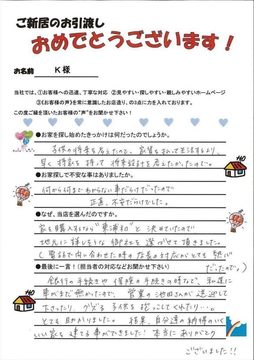 ご新居のお引渡し
おめでとうございます！
お名前 K様
当社では、①お客様への迅速、丁寧な対応 ②見やすい・探しやすい・親しみやすいホームページ
③《お客様の声》を常に意識したお店造り、の3点に力を入れております。
この度ご縁を頂いたお客様の"声"をお聞かせ下さい！
●お家を探し始めたきっかけは何だったのでしょうか。
子供の将来を考えたのと、家賃を払って生活するより、
早く持家を持って将来設計を考えたかったので。
●お家探しで不安な事はありましたか。
何から何までわからない事だらけだったので
正直、不安だらけでした。
●なぜ、当店を選んだのですか。
家を購入するなら"東浦和"と決めていたので
地元に詳しそうな御社を選ばせて頂きました。
(電話で問い合わせた時の店長の対応がとても
だったので。)
●最後に一言！(担当者の対応などお聞かせ下さい)
銀行の手続きや保険の手続きの時など、私達に
車がまだ無かったので、営業の池田さんが送迎して
下さったり、グズる子供を抱っこしてくれたり…。
とても助かりました。結果、自分達の納得のいく
いい家を建てる事ができました！本当にありがとう
ございました!!